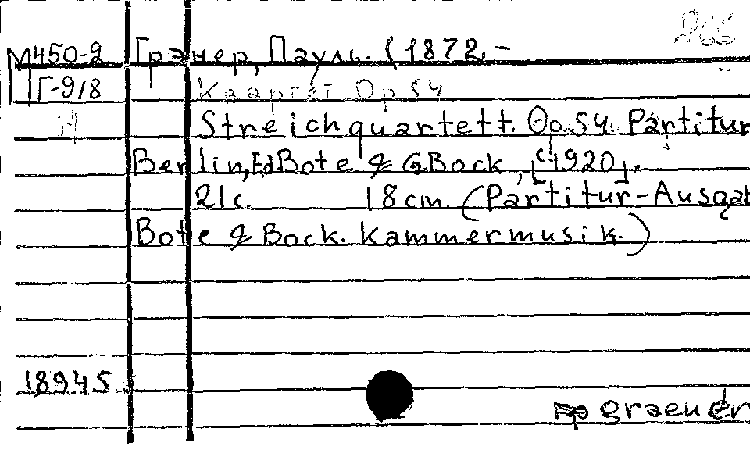 М450-2 Грэнер, Пауль. (1872, –
Г-918 Квартет Ор 54
Streichquartett. Op.54. Partitur
Berlin, Ed Bote & G.Bock, [c1920].
21c. 18cm (Partitur-Ausgab
Bote & Bock. Kammermusik.)
18945
graener